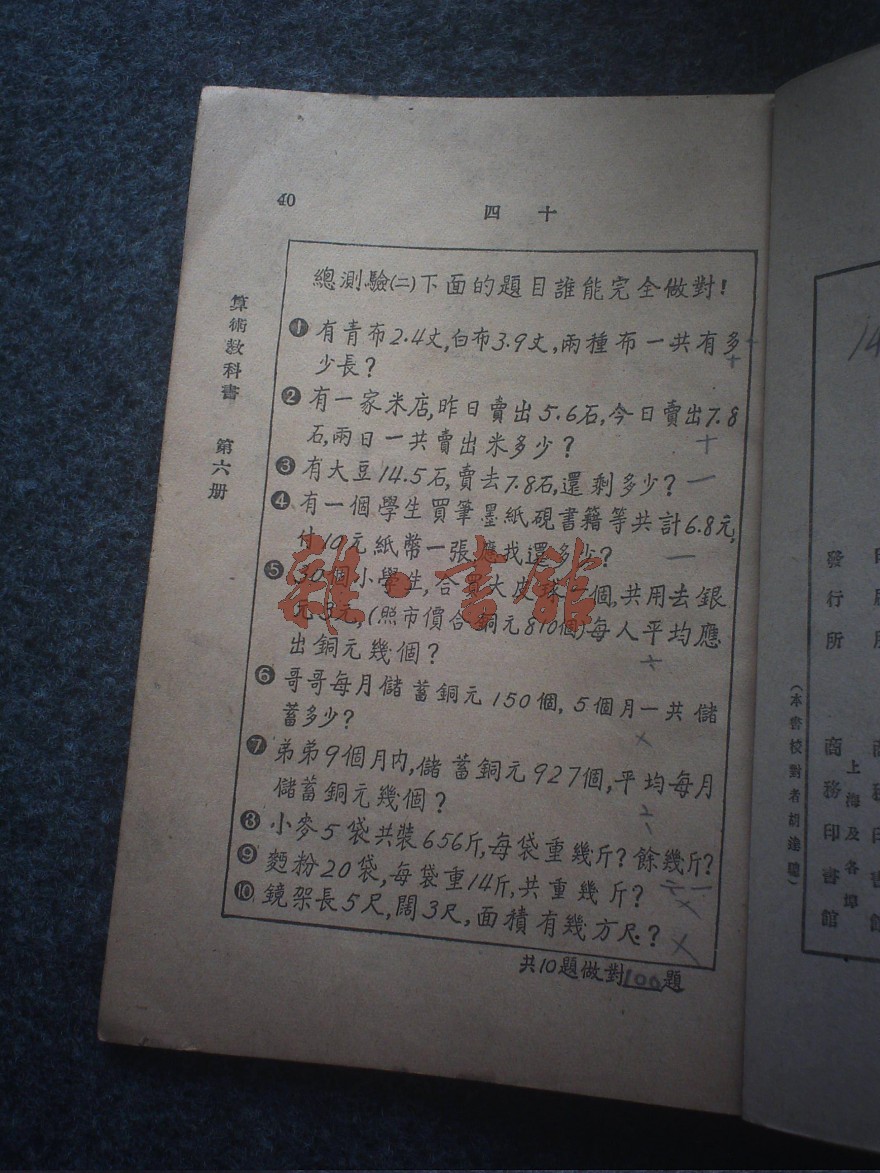 40
四十
算術教科書 第六册
總測驗(二)下面的題目誰能完全做對!
❶有青布2.4丈,白布3.9丈,兩種布一共有多
少長?
❷有一家米店,昨日賣出5.6石,今日賣出7.8
石,兩日一共賣出米多少?
❸有大豆14.5石,賣去7.8石,還剩多少?
❹有一個學生買筆墨紙硯書籍等共計6.8元,
付10元紙幣一張應找還多少?
❺30個小學生,合買大皮球一個,共用去銀
元3元,(照市價合銅元810個)每人平均應
出銅元幾個?
❻哥哥每月儲蓄銅元150個,5個月一共儲
蓄多少?
❼弟弟9個月内,儲蓄銅元927個,平均每月
儲蓄銅元幾個?
❽小麥5袋共裝656斤,每袋重幾斤?餘幾斤?
❾麵粉20袋,每袋重14斤,共重幾斤?
❿鏡架長5尺,闊3尺,面積有幾方尺?
共10題做對100題
雜·書館
14
發行所
上海及各埠
商務印書館